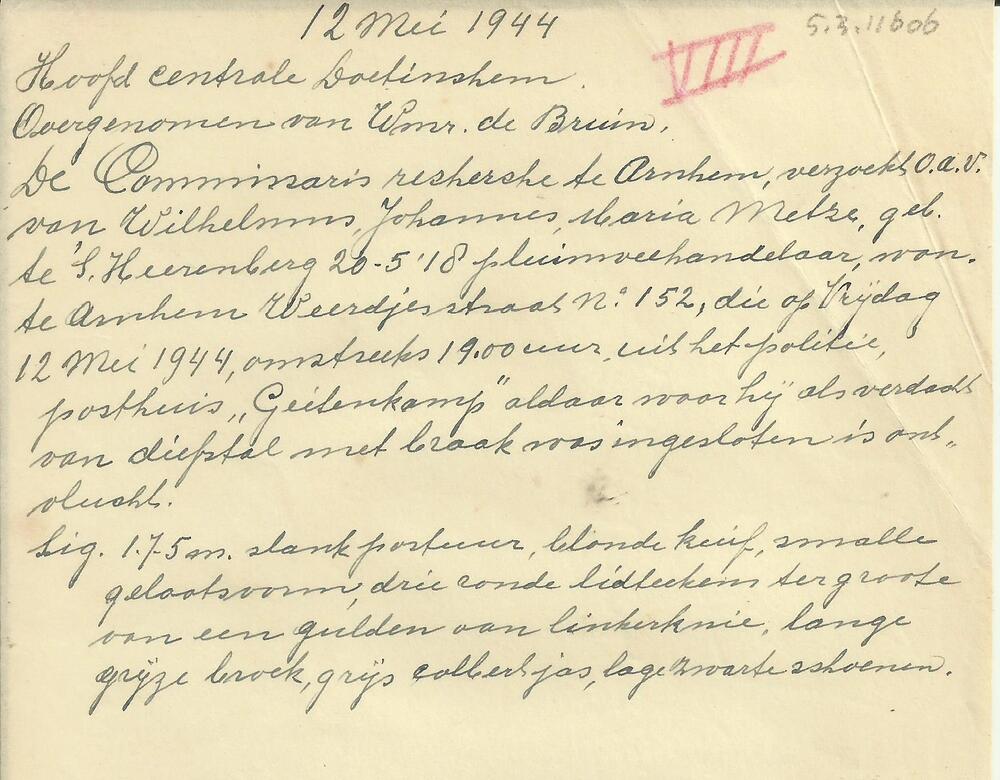 12 Mei 1944
5.3.11606
VIIII
Hoofd centrale Doetinshem.
Overgenomen van Wmr. de Bruin.
De Commissaris reshershe te Arnhem, verzoekt O.a.V.
van Wilhelmus, Johannes, Maria Metze, geb.
te 'S. Heerenberg 20-5'18 pluimveehandelaar, won.
te Arnhem Weerdjesstraat No. 152, die op Vrijdag
12 Mei 1944, omstreeks 19.00 uur, uit het politie,
posthuis, „Geitenkamp" aldaar waar hij als verdacht
van diefstal met braak was ingesloten is ont„
vlucht.
Sig. 1.75 m. slank postuur, blonde kuif, smalle
gelaatsvorm, drie ronde lidteekens ter groote
van een gulden aan linkerknie, lange
grijze broek, grijs colbert jas, lage zwarte sshoenen.